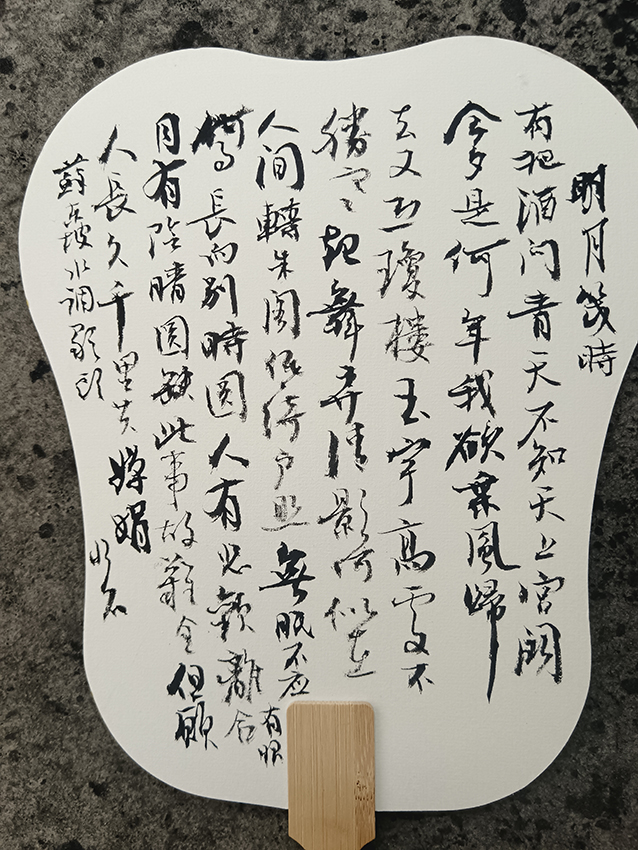 明月幾時
有把酒问青天不知天上宫阙
今夕是何年我欲乘風歸
去又恐瓊樓玉宇高處不
勝寒起舞弄清影何似在
人间轉朱阁低绮户照無眠不应有恨
何事長向别時圆人有悲歡離合
月有陰晴圆缺此事故難全但願
人長久千里共嬋娟
蘇东坡水调歌头